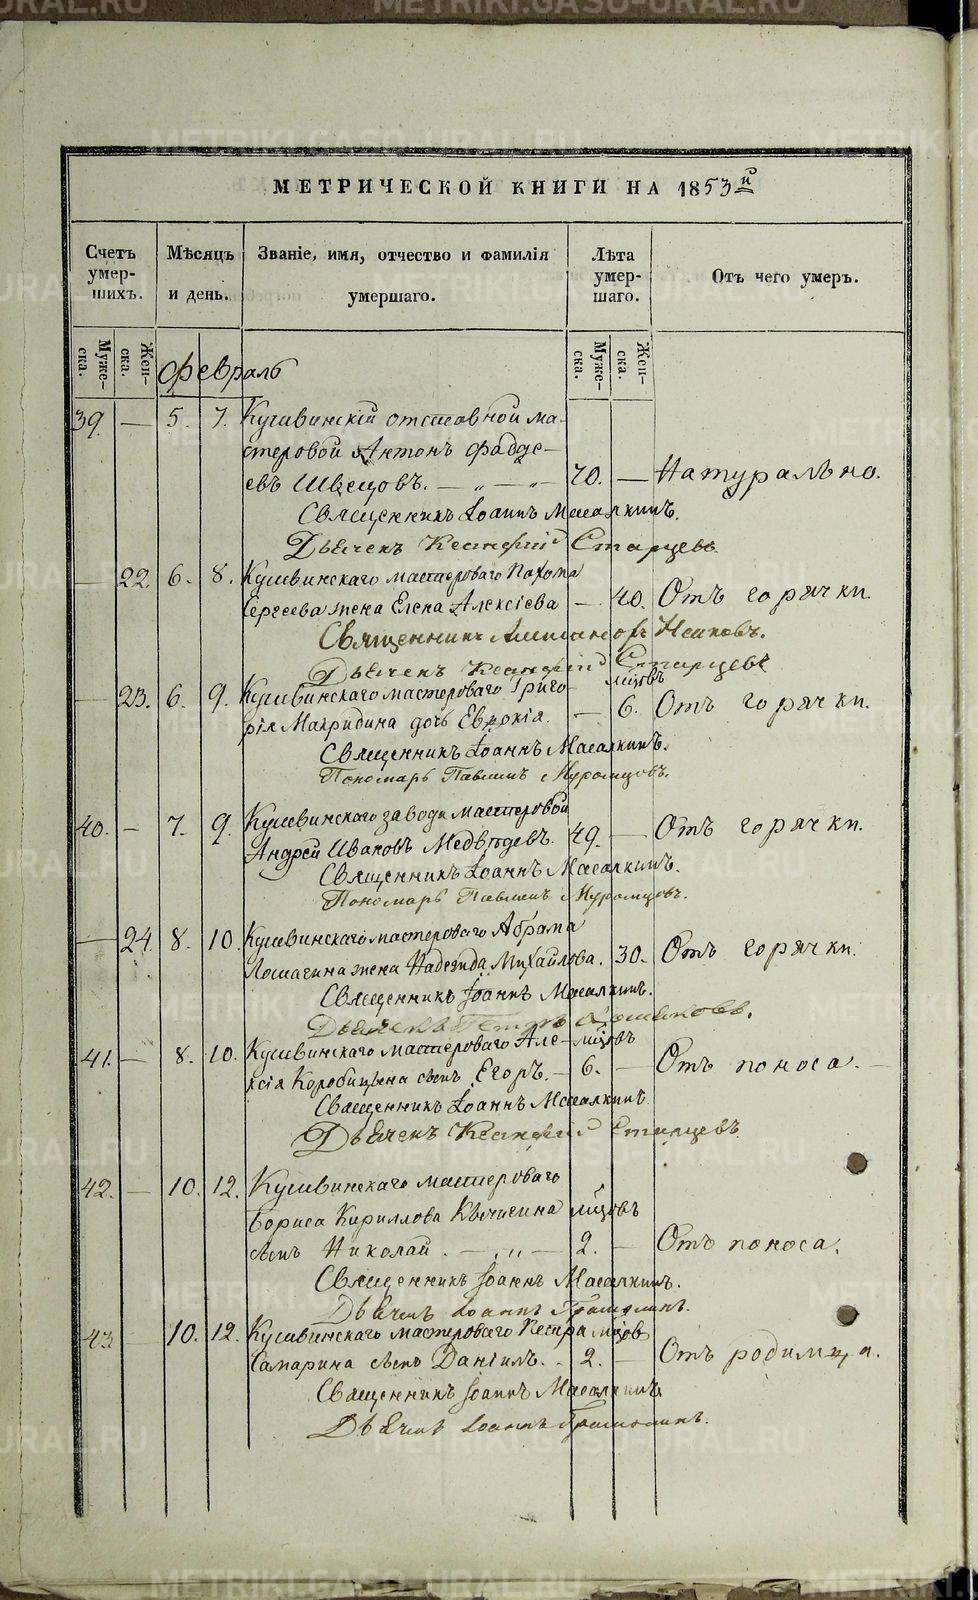 МЕТРИЧЕСКОЙ КНИГИ НА 1853й
Счетъ умер-шихъ. Мѣсяцъ и день. Званіе, имя, отчество и фамилія умершаго. Лѣта умер-шаго. Отъ чего умеръ.
Муже-ска. Жен-ска. Февраль Муже-ска. Жен-ска.
39. — 5. 7. Кушвинскій отставной ма-
стеровой Антонъ Фадде-
евъ Швецовъ. — „ — „ — 70. — Натурально.
Священникъ Іоаннъ Масалкинъ.
Дьячекъ Ксанфій Старцевъ
— 22. 6. 8. Кушвинскаго мастероваго Пахома
Сергеева жена Елена Алексіева — 40. Отъ горячки.
Священникъ
Дьячекъ Ксанфій Старцевъ
— 23. 6. 9. Кушвинскаго мастероваго Григо- мцовъ
рія Макридина дочь Евдокія. — 6. Отъ горячки.
Священникъ Іоаннъ Масалкинъ.
Пономарь Павлинъ Муромцовъ.
40. — 7. 9. Кушвинскаго завода мастеровой
Андрей Ивановъ Медвѣдевъ. 49. — Отъ горячки.
Священникъ Іоаннъ Масалкинъ.
Пономарь Павлинъ Муромцовъ.
— 24. 8. 10. Кушвинскаго мастероваго Абрама
Лошагина жена Надежда Михайлова. 30. Отъ горячки.
Священникъ Іоаннъ Масалкинъ.
Дьячекъ Петръ
41. — 8. 10. Кушвинскаго мастероваго Але- мцовъ
ксія Коробицына сынъ Егоръ. — 6. — Отъ поноса. —
Священникъ Іоаннъ Масалкинъ
Дьячекъ Ксанфій Старцевъ
42. — 10. 12. Кушвинскаго мастероваго
Бориса Кириллова Кычигина мцовъ
сынъ Николай. — „ — 2. — Отъ поноса.
Священникъ Іоаннъ Масалкинъ.
Дьячекъ Іоаннъ
43 — 10. 12. Кушвинскаго мастероваго Петра мцов
Сапарина сынъ Даніилъ. 2. — Отъ родимца.
Священникъ Іоаннъ Масалкинъ
Дьячекъ Іоаннъ
METRIKI.GASO-URAL.RU